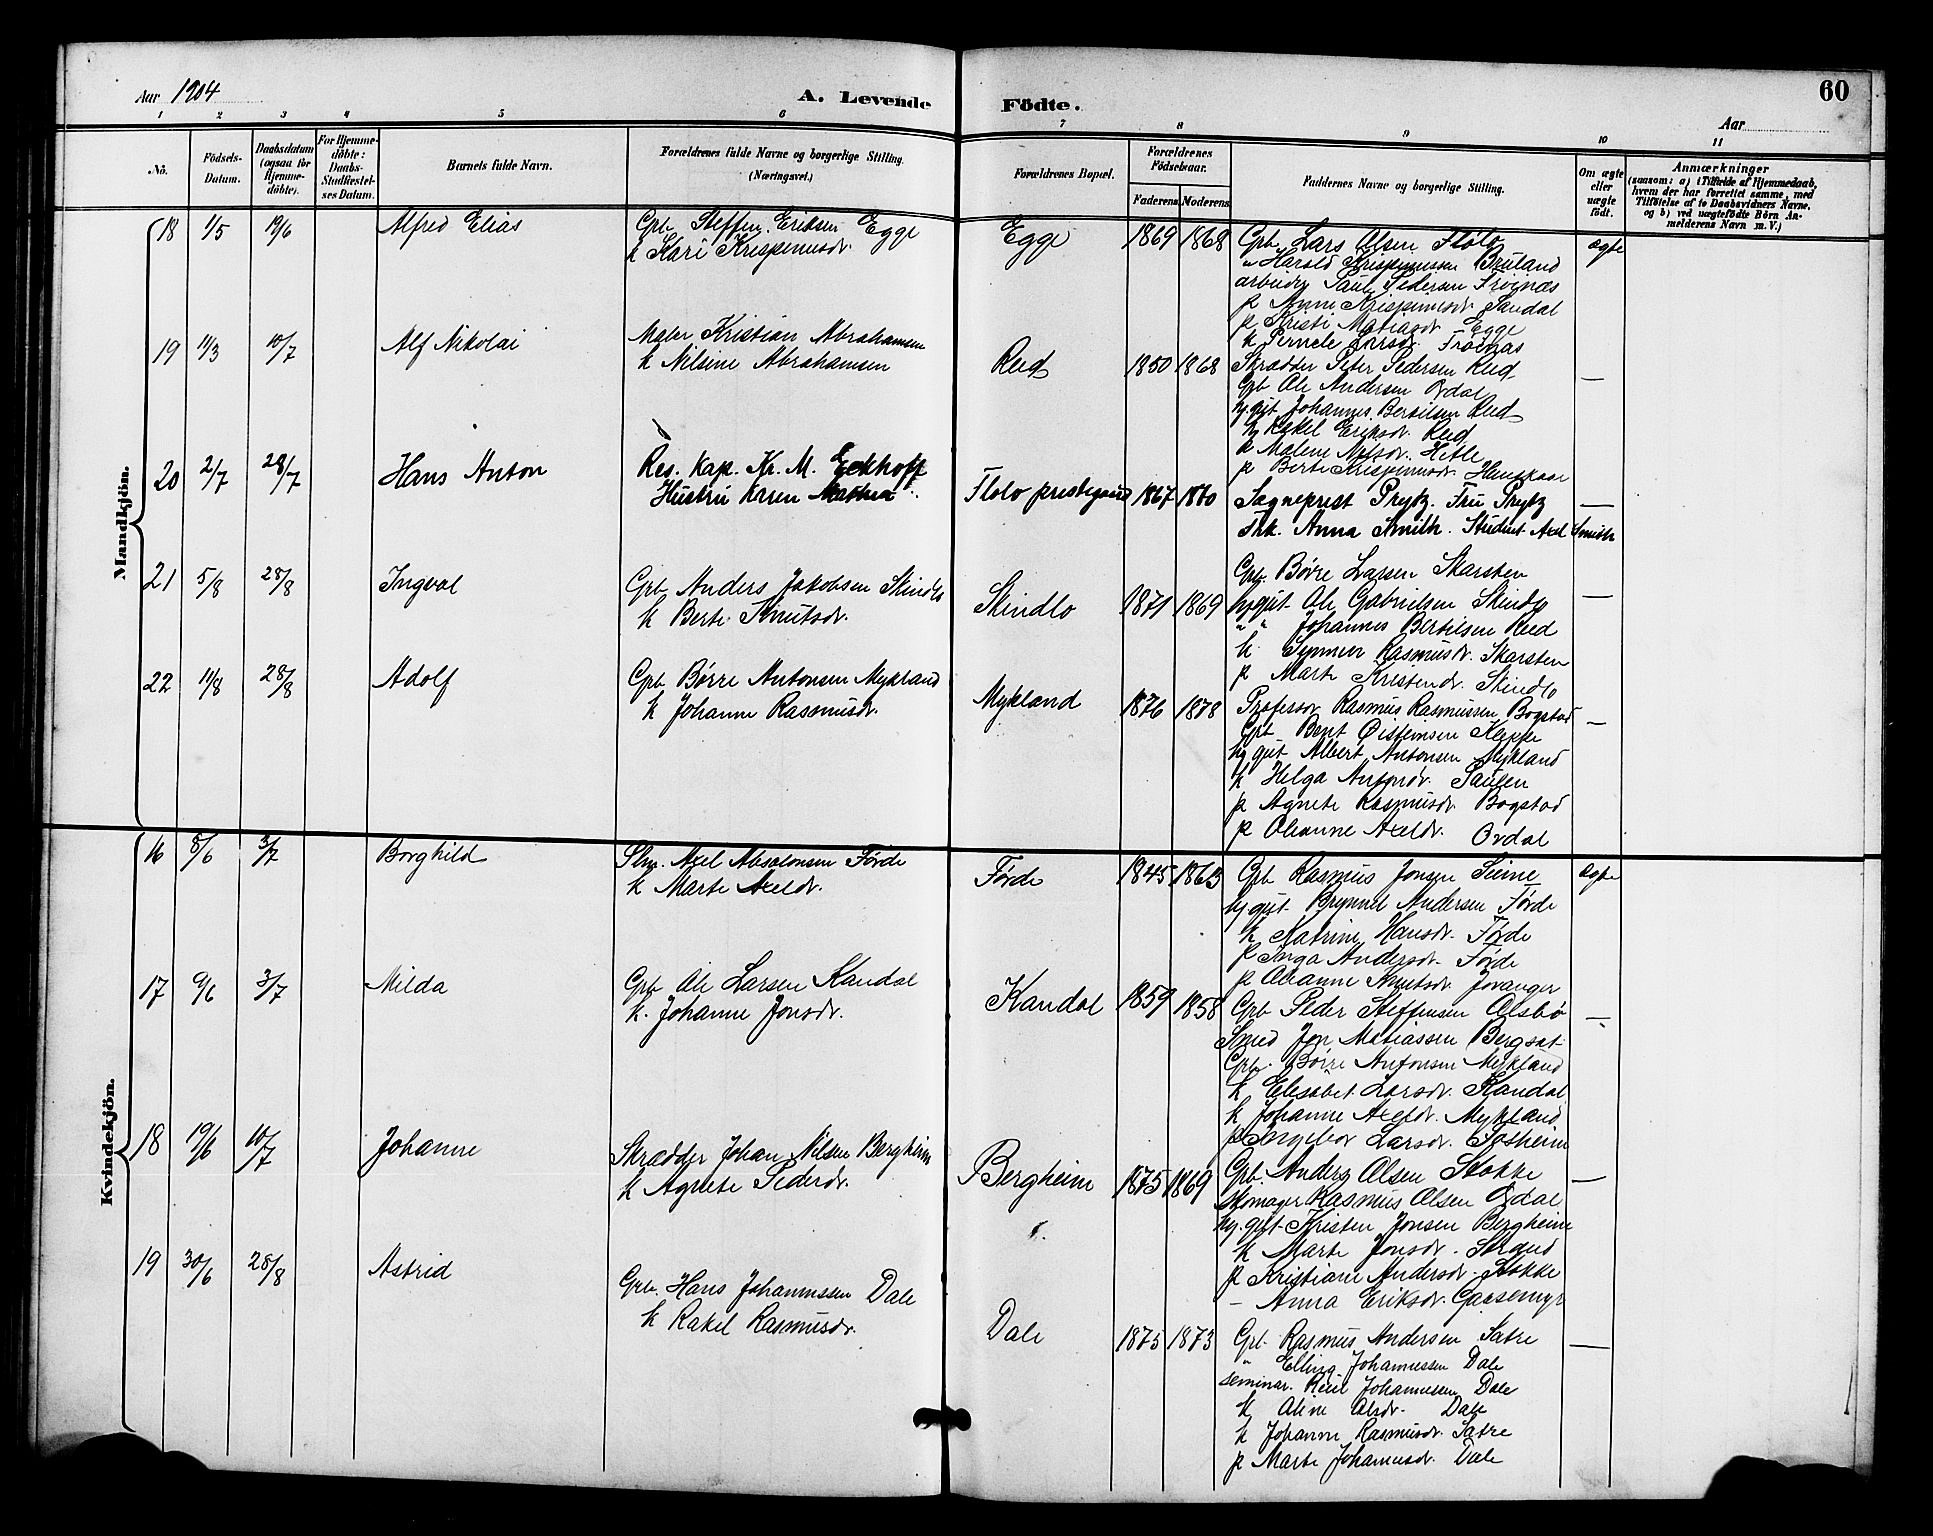 Aar 1904
A. Levende Födte.
60
Aar
1 2 3 4 5 6 7 8 9 10 11
No.
Födsels-Datum.
Daabsdatum (ogsaa for Hjemme-döbte).
For Hjemme-döbte: Daabs-Stadfæstel-ses Datum.
Barnets fulde Navn.
Forældrenes fulde Navne og borgerlige Stilling. (Næringsvei.)
Forældrenes Bopæl.
Forældrenes Födselsaar.
Faderens Moderens
Faddernes Navne og borgerlige Stilling.
Om ægte eller uægte födt.
Anmærkninger
(saasom: a) i Tilfælde af Hjemmedaab,
hvem der har forrettet samme, med
Tilföielse af to Daabsvidners Navne.
og b) ved uægtefödte Börn An-
melderens Navn m. V.)
Mandkjön.
18 1/5 19/6 Alfred Elias
Grb. Steffen Eriksen Egge
k Kari Krispinusdr.
Egge 1869 1868
Grb. Lars Olsen Flölo
" Harald Krispinussen Bruland
arbeider Paul Pedersen Fröinæs
p Anne Krispinusdr Sandal
p Kristi Matiasdr. Egge
k Pernele Larsdr. Fröinæs
ægte
19 11/3 10/7 Alf Nikolai
Maler Kristian Abrahamsen
k Nilsine Abrahamsen
Reed 1850 1868
Skrædder Peter Pedersen Reed
Grb Ole Andersen Ordal
ug.gut Johannes Bertilsen Reed
ug Rakel Eriksdr. Reed
k Malene Nilsdr. Hetle
p Berte Krispinusdr
—
20 2/7 28/7 Hans Anton
Res. Kap. Kr. M. Eckhoff
Hustru Karen Mathea
Flölo prestegaard 1867 1870
Sogneprest Prytz. Fru Prytz
Anna Smith. Student Axel Smith
—
21 5/8 28/8 Ingval
Grb Anders Jakobsen Skindlo
k Berte Knutsdr.
Skindlo 1871 1869
Grb. Börre Larsen Skarsten
ug.gut Ole Gabrielsen Skindlo
" " Johannes Bertilsen Reed
k Synneve Rasmusdr. Skarsten
p Marte Kristendr. Skindlo
—
22 11/8 28/8 Adolf
Grb Börre Antonsen Mykland
k Johanne Rasmusdr.
Mykland 1876 1878
Professor Rasmus Rasmussen Bogstad
Grb Bent Öistensen
ug gut Albert Antonsen Mykland
k Helga Antondr.
p Agnete Rasmusdr Bogstad
p Olianne Axeldr. Ordal
—
Kvindekjön.
16 8/6 3/7 Borghild
Slm. Axel Absalonsen Förde
k Marte Axeldr.
Förde 1845 1863
Grb Rasmus Jonsen Seime
ug gut Brynnel Andersen Förde
k Katrine Hansdr. Förde
p Inga Andersdr. Förde
p Olianne Knutsdr.
ægte
17 9/6 3/7 Milda
Grb Ole Larsen Kandal
k. Johanne Jonsdr.
Kandal 1859 1858
Grb Peder Steffensen Aalsbö
Smed Jon Matiassen
Grb. Börre Antonsen Mykland
k Elisabet Larsdr. Kandal
k Johanne Axeldr. Mykland
p Ingebor Larsdr. Fosheim
—
18 19/6 10/7 Johanne
Skrædder Johan Nilsen Bergheim
k Agnete Pederdr.
Bergheim 1875 1869
Grb. Anders Olsen Stokke
Skomager Rasmus Olsen Ordal
ug. gut Kristen Jonsen Bergheim
k Marte Jonsdr. Strand
p Kristiane Andersdr. Stokke
– Anna Eriksdr. Gaasemyr
—
19 30/6 28/8 Astrid
Grb. Hans Johannessen Dale
k Rakel Rasmusdr.
Dale 1875 1873
Grb. Rasmus Andersen Sætre
" Elling Johannessen Dale
seminar. Johannessen Dale
k Aline Olsdr. Dale
k Johanne Rasmusdr. Sætre
p Marte Johannesdr. Dale
—